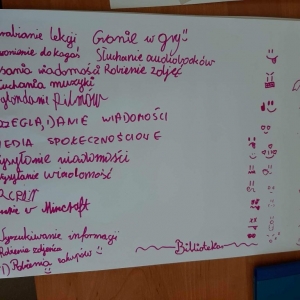 rabianie lekcji Granie w gry
wonienie do kogoś Słuchanie audiobooków
sania wiadomości Robienie zdjęć
uchania muzyki
glondanie Filmów
ZEGLĄDANIE WIADOMOŚCI
EDIA SPOŁECZNOŚCIOWE
ysyłanie wiadomości
zytanie wiadomość
w Mincraft
yszukiwanie informacji
Robienie zdjęcia
Robienia zakupów
Biblioteka